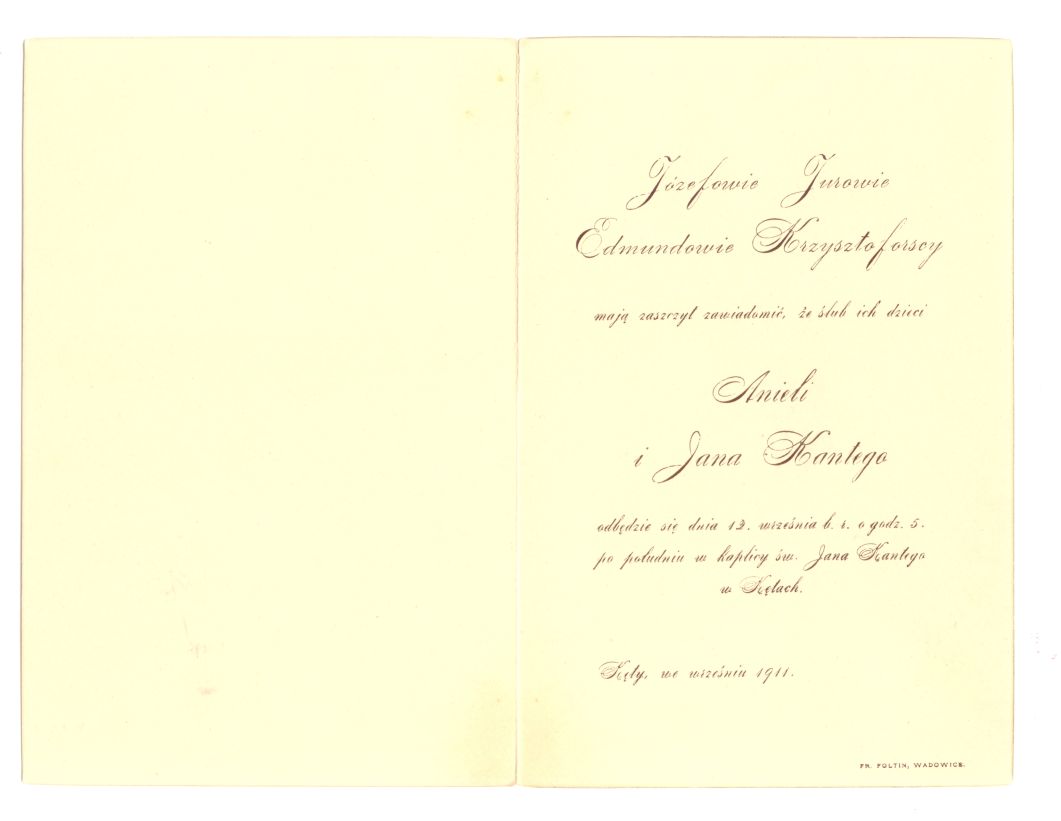 Józefowie Jurowie
Edmundowie Krzysztoforscy
mają zaszczyt zawiadomić, że ślub ich dzieci
Anieli
i Jana Kantego
odbędzie się dnia 12. września b. r. o godz. 5.
po południu w kaplicy św. Jana Kantego
w Kętach.
Kęty, we wrześniu 1911.
FR. FOLTIN, WADOWICE.